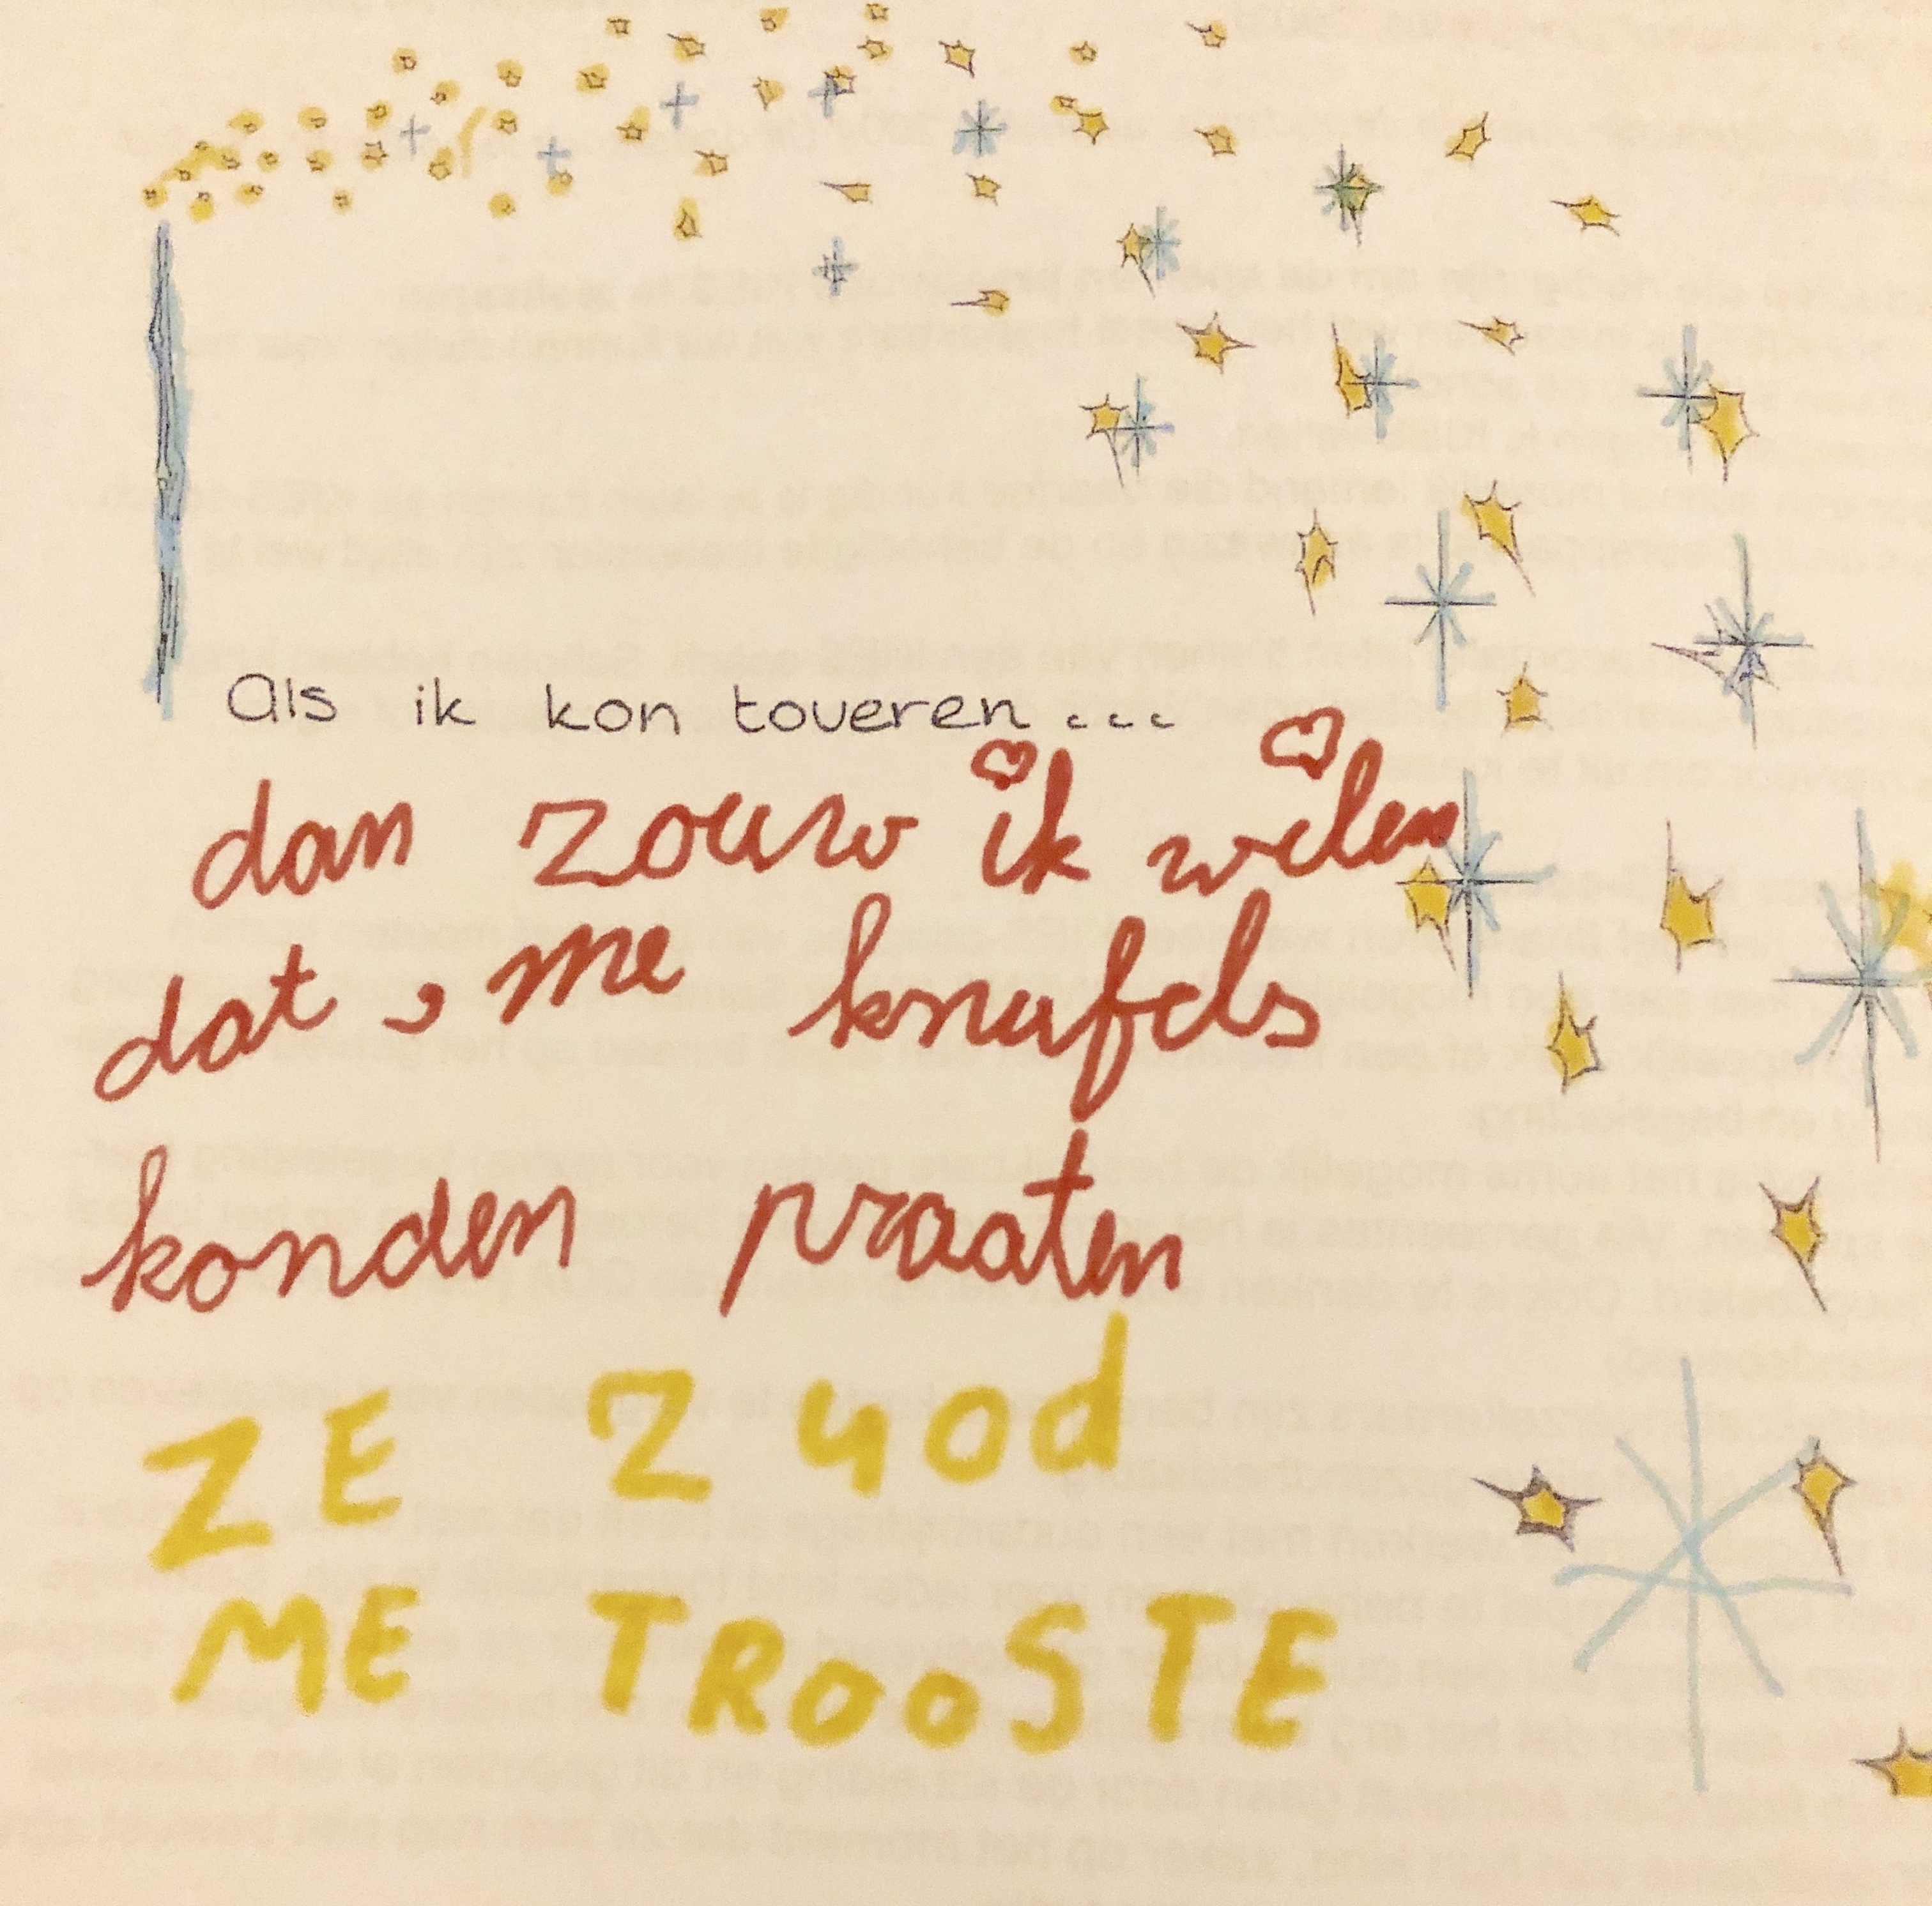 Als ik kon toveren...
dan zouw ik wilen
dat, me knufels
konden praaten
ZE ZUOd
ME TROOSTE